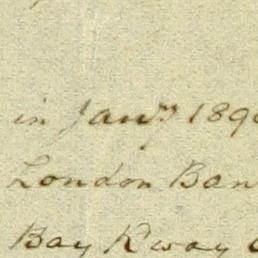 in Jany 189
London Ban
Bay R'way